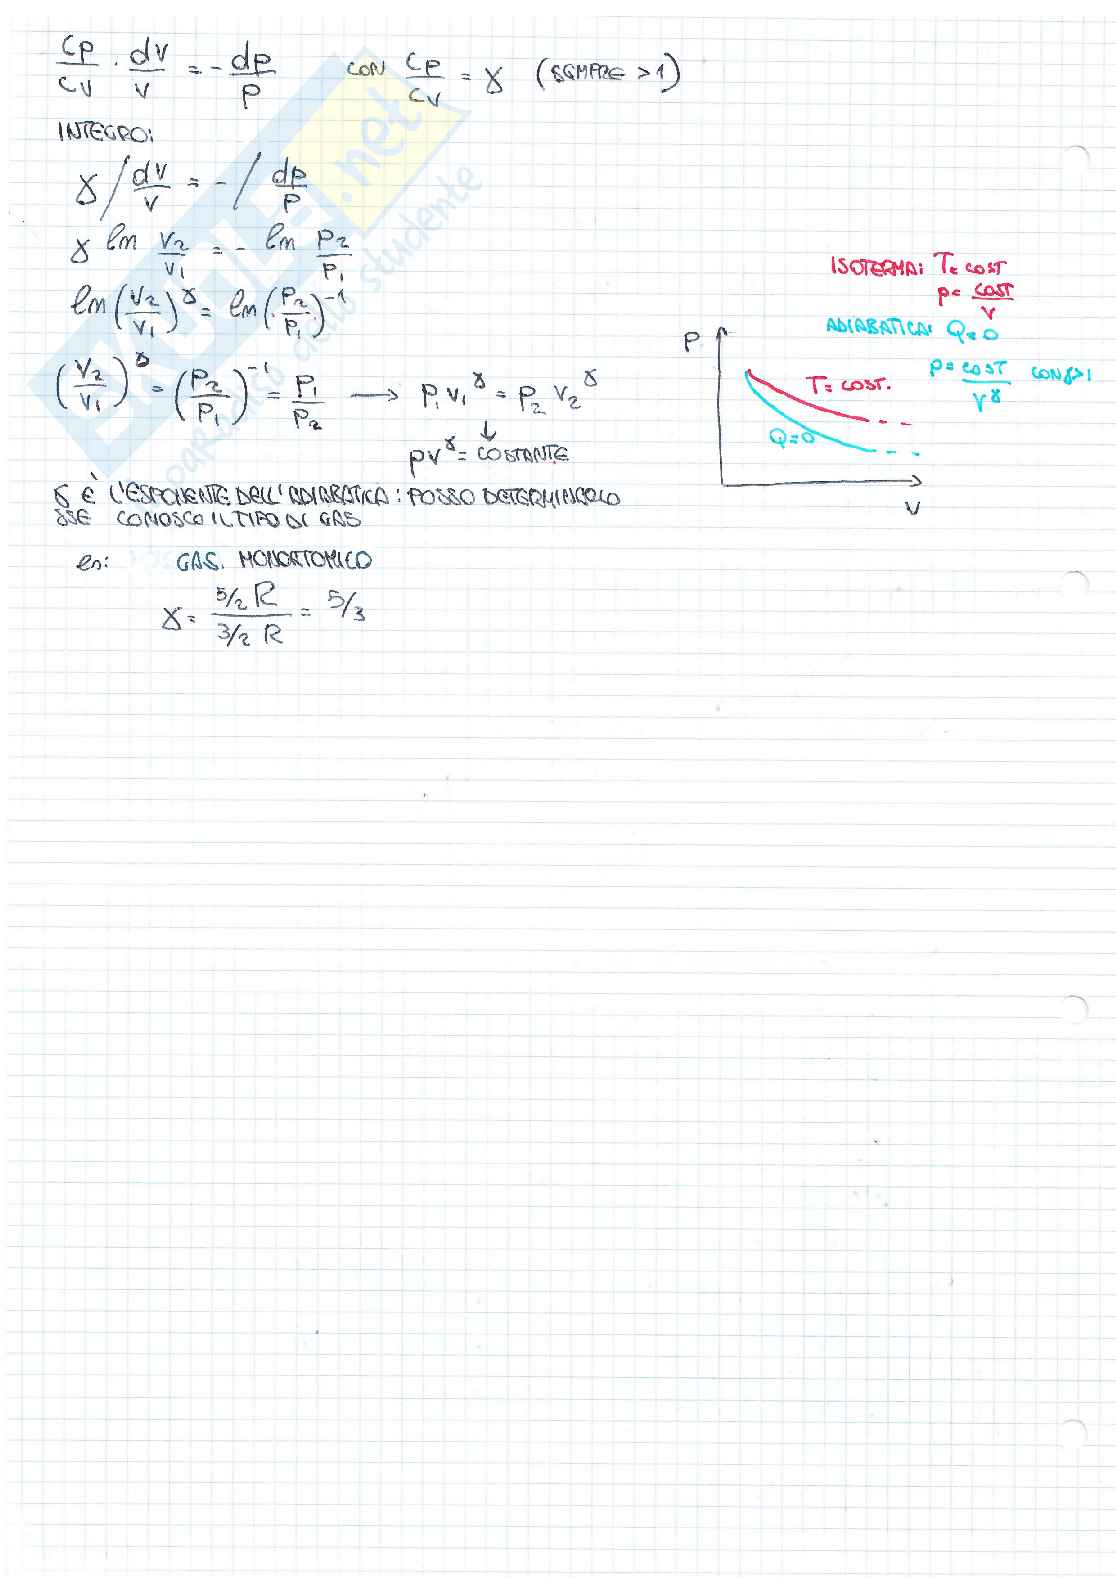 cp/cv · dv/v = - dp/p CON cp/cv = γ (SEMPRE > 1)
INTEGRO:
γ ∫ dv/v = - ∫ dp/p
γ ln v2/v1 = - ln p2/p1
ln (v2/v1)^γ = ln (p2/p1)^-1
(v2/v1)^γ = (p2/p1)^-1 = p1/p2 → p1 v1^γ = p2 v2^γ
↓
pv^γ = COSTANTE
γ È L'ESPONENTE DELL'ADIABATICA: POSSO DETERMINARLO
SSE CONOSCO IL TIPO DI GAS
es: GAS. MONOATOMICO
γ = 5/2 R / 3/2 R = 5/3
ISOTERMA: T = COST
p = COST/V
ADIABATICA: Q = 0
p = COST/V^γ CON γ>1
P
T = COST.
Q = 0
V
SKUOLA.net